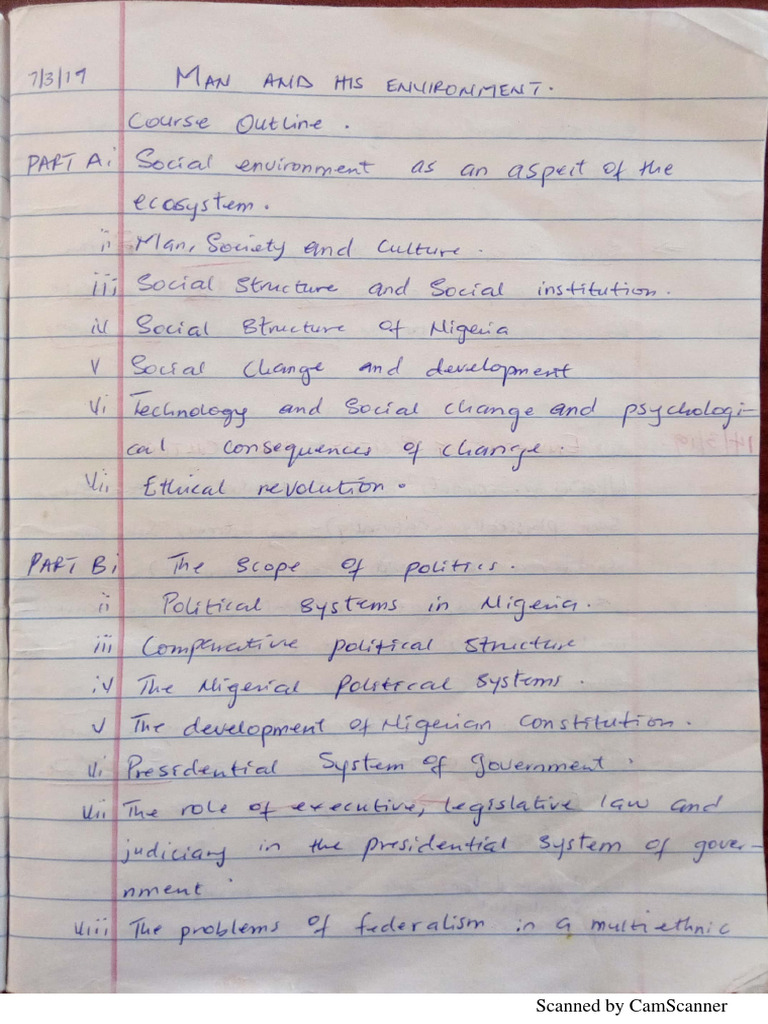 7/3/19 MAN AND HIS ENVIRONMENT.
Course Outline.
PART A i Social environment as an aspect of the
ecosystem.
ii Man, Society and Culture.
iii Social Structure and Social institution.
iv Social Structure of Nigeria
v Social Change and development
vi Technology and Social change and psychologi-
cal consequences of change.
vii Ethical revolution.
PART B i The Scope of politics.
ii Political Systems in Nigeria.
iii Comperative political Structure
iv The Nigerial Political Systems.
v The development of Nigerian Constitution.
vi Presidential System of Government.
vii The role of executive, legislative law and
judiciary in the presidential system of gover-
nment.
viii The problems of federalism in a multiethnic
14/3/19
Scanned by CamScanner